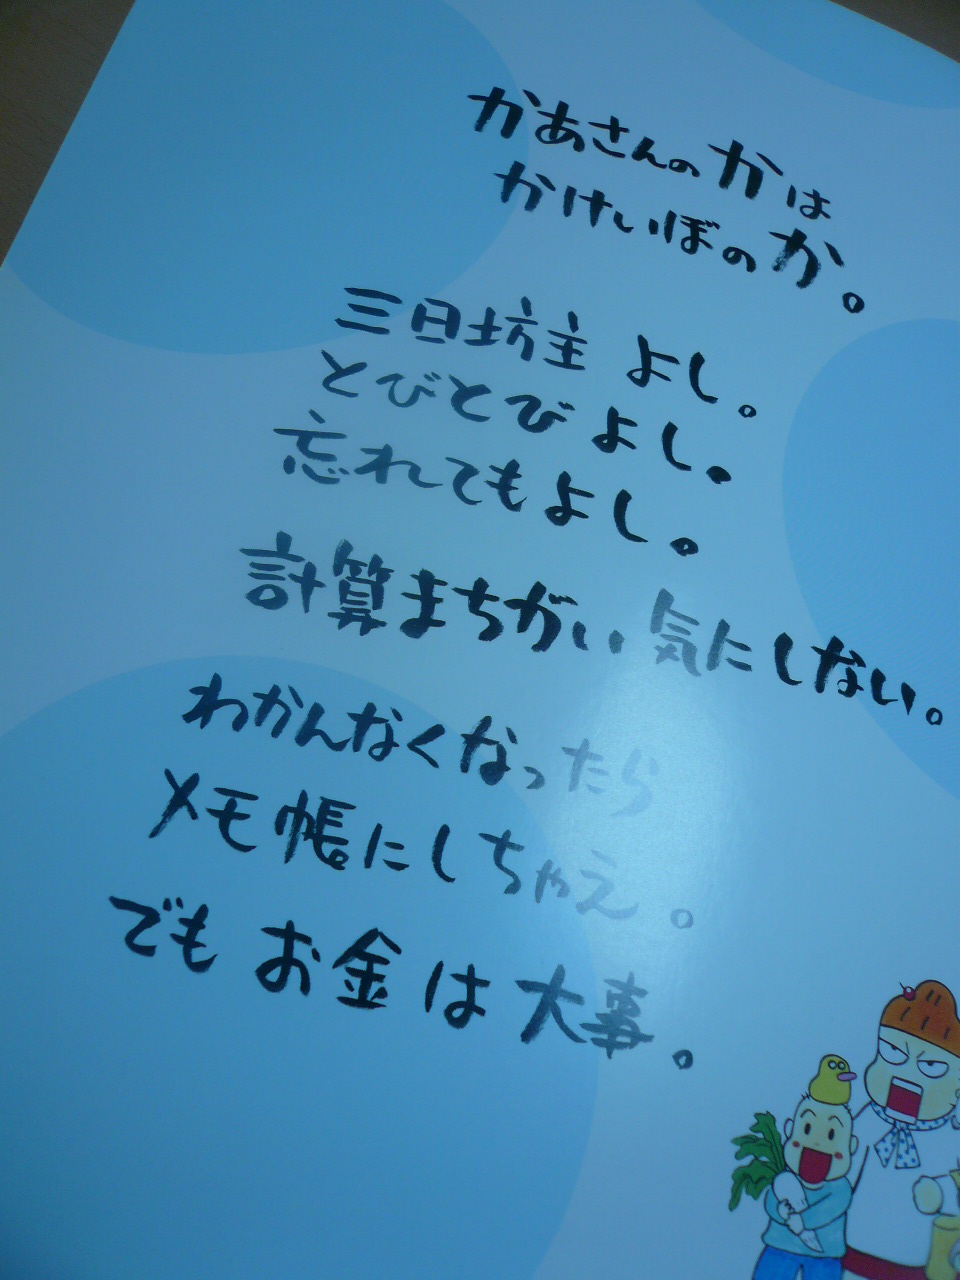 かあさんのかは
かけいぼのか。
三日坊主 よし。
とびとび よし。
忘れてもよし。
計算まちがい 気にしない。
わかんなくなったら
メモ帳にしちゃえ。
でも お金は 大事。